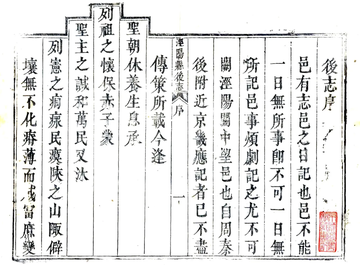 後志序
邑有志邑之日記也邑不能
一日無所事即不可一日無
所記邑事煩劇記之尤不可
闕涇陽關中望邑也自周秦
後附近京畿應記者已不盡
涇陽縣後志 序 一
傳策所載今逢
聖朝休養生息承
列祖之懷保赤子蒙
聖主之誠和萬民又沐
列憲之痌瘝民瘼陝之山陬僻
壤無不化瘠薄而咸富庶變